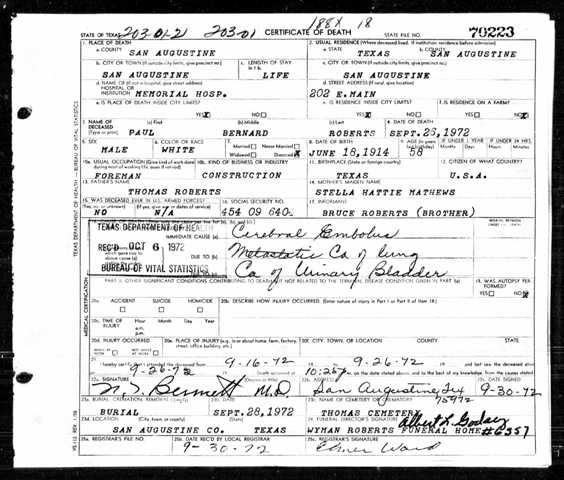 188X 18
STATE OF TEXAS 203-01-2 203-01 CERTIFICATE OF DEATH STATE FILE NO. 70223
1. PLACE OF DEATH 2. USUAL RESIDENCE (Where deceased lived. If institution: residence before admission)
a. COUNTY SAN AUGUSTINE a. STATE TEXAS b. COUNTY SAN AUGUSTINE
b. CITY OR TOWN (If outside city limits, give precinct no.) c. LENGTH OF STAY in 1 b. c. CITY OR TOWN (If outside city limits, give precinct no.)
SAN AUGUSTINE LIFE SAN AUGUSTINE
d. NAME OF (If not in hospital, give street address) HOSPITAL OR INSTITUTION MEMORIAL HOSP. 202 E.MAIN
e. IS PLACE OF DEATH INSIDE CITY LIMITS? YES NO e. IS RESIDENCE INSIDE CITY LIMITS? YES NO f. IS RESIDENCE ON A FARM? YES NO
3. NAME OF DECEASED (Type or print) (a) First (b) Middle (c) Last 4. DATE OF DEATH
PAUL BERNARD ROBERTS SEPT.26,1972
5. SEX 6. COLOR OR RACE 7. Married Never Married Widowed Divorced 8. DATE OF BIRTH 9. AGE IF UNDER 1 YEAR IF UNDER 24 HRS.
MALE WHITE JUNE 18,1914 58 Months Days Hours Min.
10a. USUAL OCCUPATION (Give kind of work done during most of working life, even if retired) 10b. KIND OF BUSINESS OR INDUSTRY 11. BIRTHPLACE (State or foreign country) 12. CITIZEN OF WHAT COUNTRY?
FOREMAN CONSTRUCTION TEXAS U.S.A.
13. FATHER'S NAME 14. MOTHER'S MAIDEN NAME
THOMAS ROBERTS STELLA HATTIE MATHEWS
15. WAS DECEASED EVER IN U.S. ARMED FORCES? 16. SOCIAL SECURITY NO. 17. INFORMANT
NO N/A 454 09 640 BRUCE ROBERTS (BROTHER)
TEXAS DEPARTMENT OF HEALTH IMMEDIATE CAUSE (a) Cerebral Embolus
REC'D OCT 6 1972 DUE TO (b) Metastatic Ca of lung
BUREAU OF VITAL STATISTICS Ca of Urinary Bladder
PART II. OTHER SIGNIFICANT CONDITIONS CONTRIBUTING TO DEATH BUT NOT RELATED TO THE TERMINAL DISEASE CONDITION GIVEN IN PART I(a) 19. WAS AUTOPSY PERFORMED?
YES NO
20a. ACCIDENT SUICIDE HOMICIDE 20b. DESCRIBE HOW INJURY OCCURRED. (Enter nature of injury in Part I or Part II of item 18)
20c. TIME OF INJURY Hour Month Day Year a.m. p.m.
20d. INJURY OCCURRED WHILE AT WORK NOT WHILE AT WORK 20e. PLACE OF INJURY (e.g. in or about home, farm, factory, street, office building, etc.) 20f. CITY, TOWN, OR LOCATION COUNTY STATE
21. I hereby certify that I attended the deceased from 9-16-72 9-26-72 and last saw the deceased alive
9-26-72 Death occurred at 10:25 m. on the date stated above, and to the best of my knowledge, from the causes stated
22a. SIGNATURE (Degree or title) 22b. ADDRESS 22c. DATE SIGNED
Bennett M.D. San Augustine, Tex 75972 9-30-72
23a. BURIAL, CREMATION, REMOVAL 23b. DATE 23c. NAME OF CEMETERY OR CREMATORY
BURIAL SEPT.28,1972 THOMAS CEMETERY
23d. LOCATION (City, town, or county) (State) 24. FUNERAL DIRECTOR'S SIGNATURE
SAN AUGUSTINE CO. TEXAS WYMAN ROBERTS FUNERAL HOME #6357
25a. REGISTRAR'S FILE NO. 25b. DATE REC'D BY LOCAL REGISTRAR 25c. REGISTRAR'S SIGNATURE
9-30-72 Elmer Ward
TEXAS DEPARTMENT OF HEALTH—BUREAU OF VITAL STATISTICS
MEDICAL CERTIFICATION